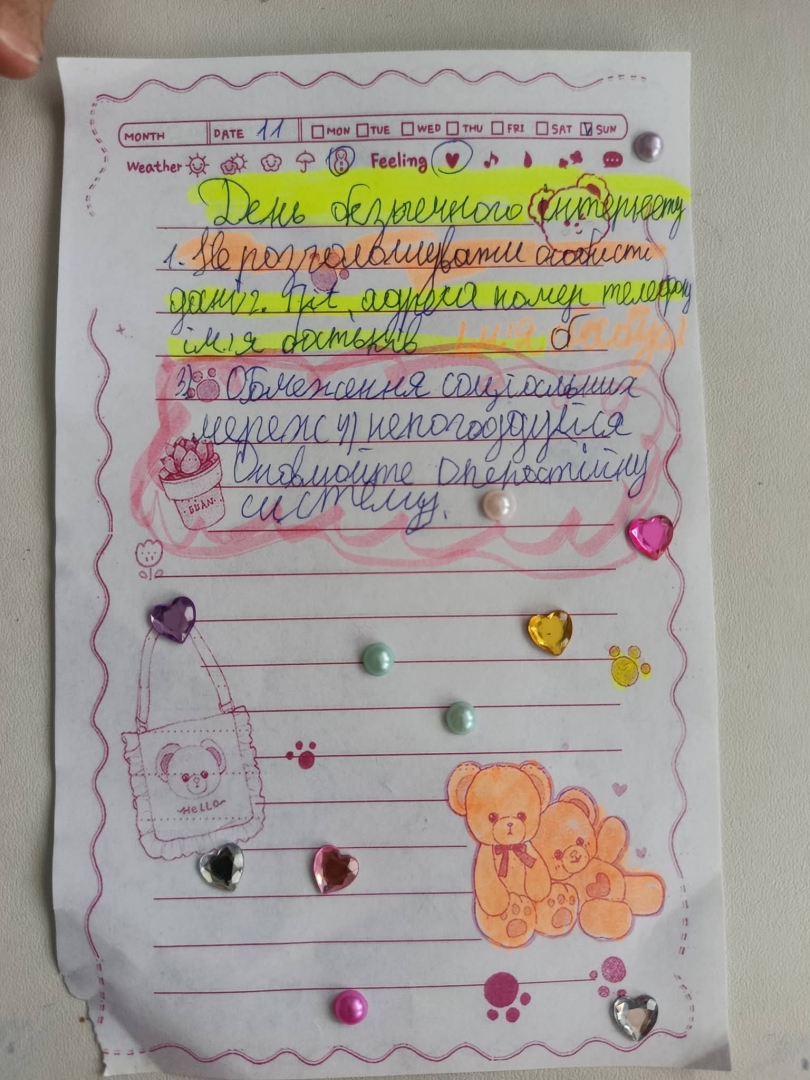 MONTH DATE 11 MON TUE WED THU FRI SAT SUN
Weather Feeling
День безпечного інтернету
1. Не розголошувати особисті
дані: адреса номер телефону
ім'я батьків б
3) Обмеження соціальних
мереж 4)
Оновлюйте Операстійну
систему.
HELLO